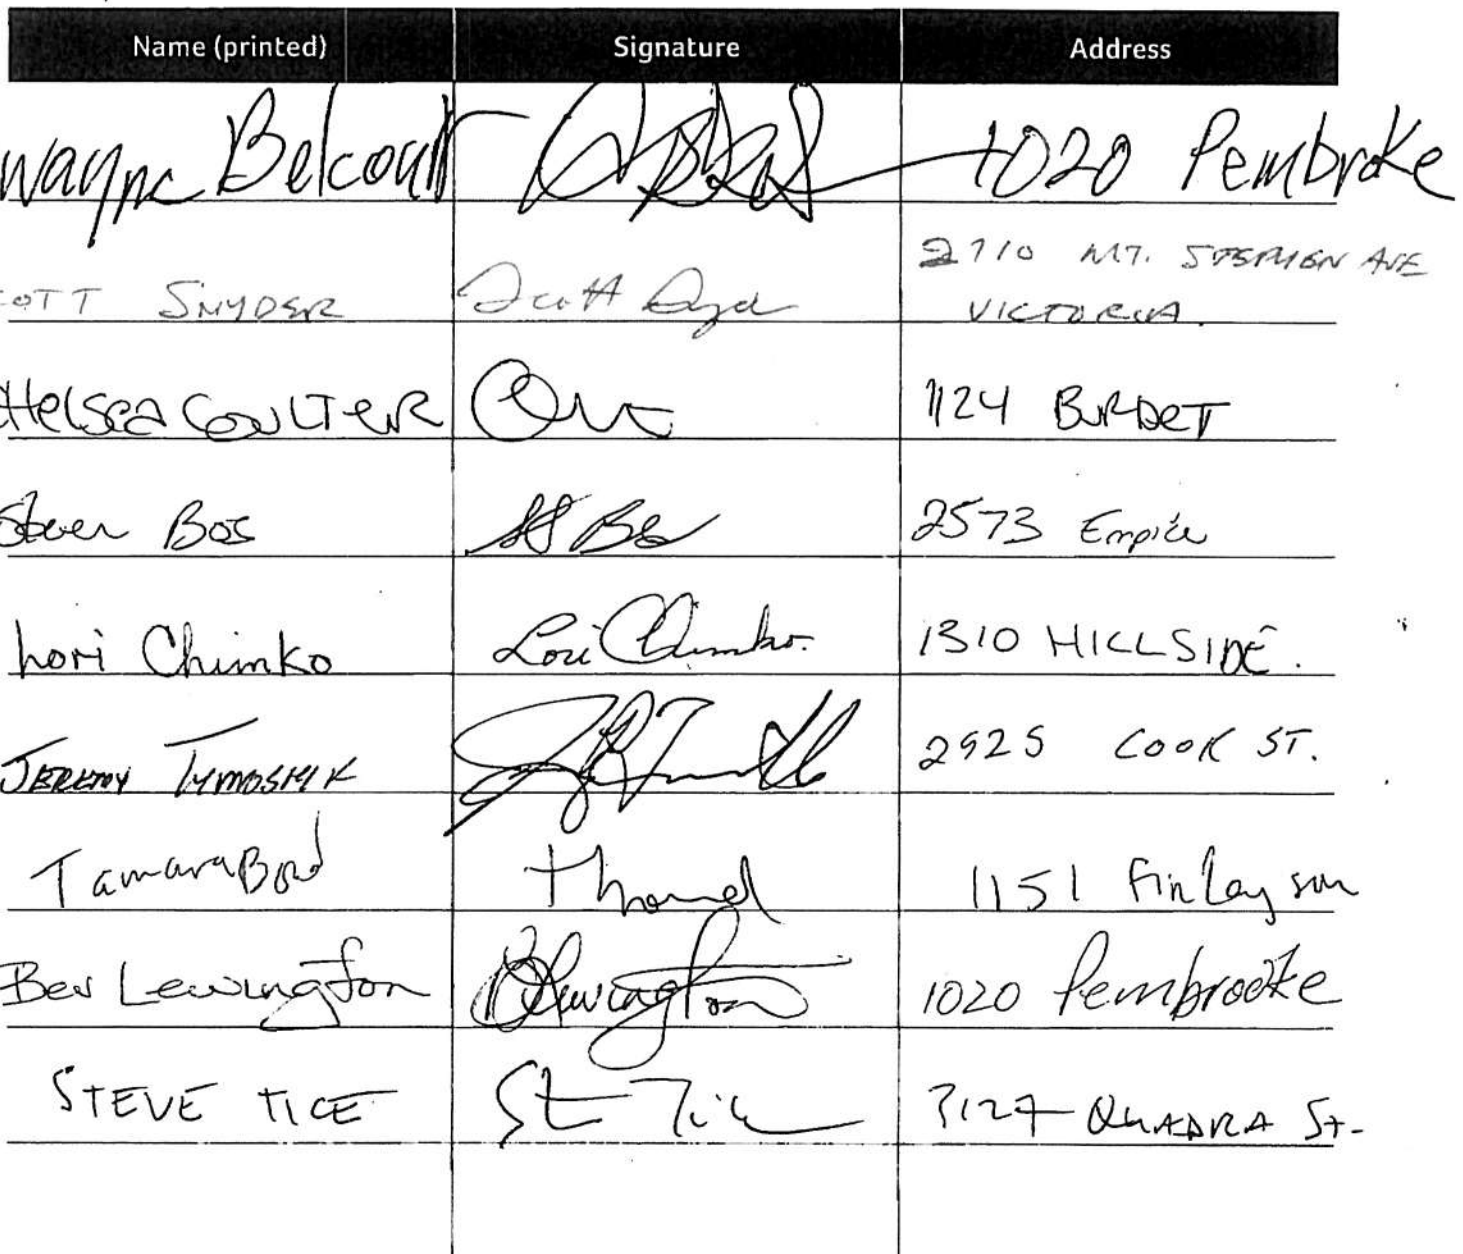 Name (printed) Signature Address
wayne Belcourt 1020 Pembroke
OTT SNYDER Scott Snyder 2710 MT. STEPHEN AVE
VICTORIA.
HelSea COULTeR 1124 BURDeT
Steven Bos St Bos 2573 Empire
Lori Chimko Lori Chimko. 1310 HILLSIDE.
JEREMY TYMOSHYK 2925 COOK ST.
Tamara Bond 1151 Finlayson
Bev Lewington BLewington 1020 Pembrooke
STEVE TICE St Tice 3127 QUADRA St.